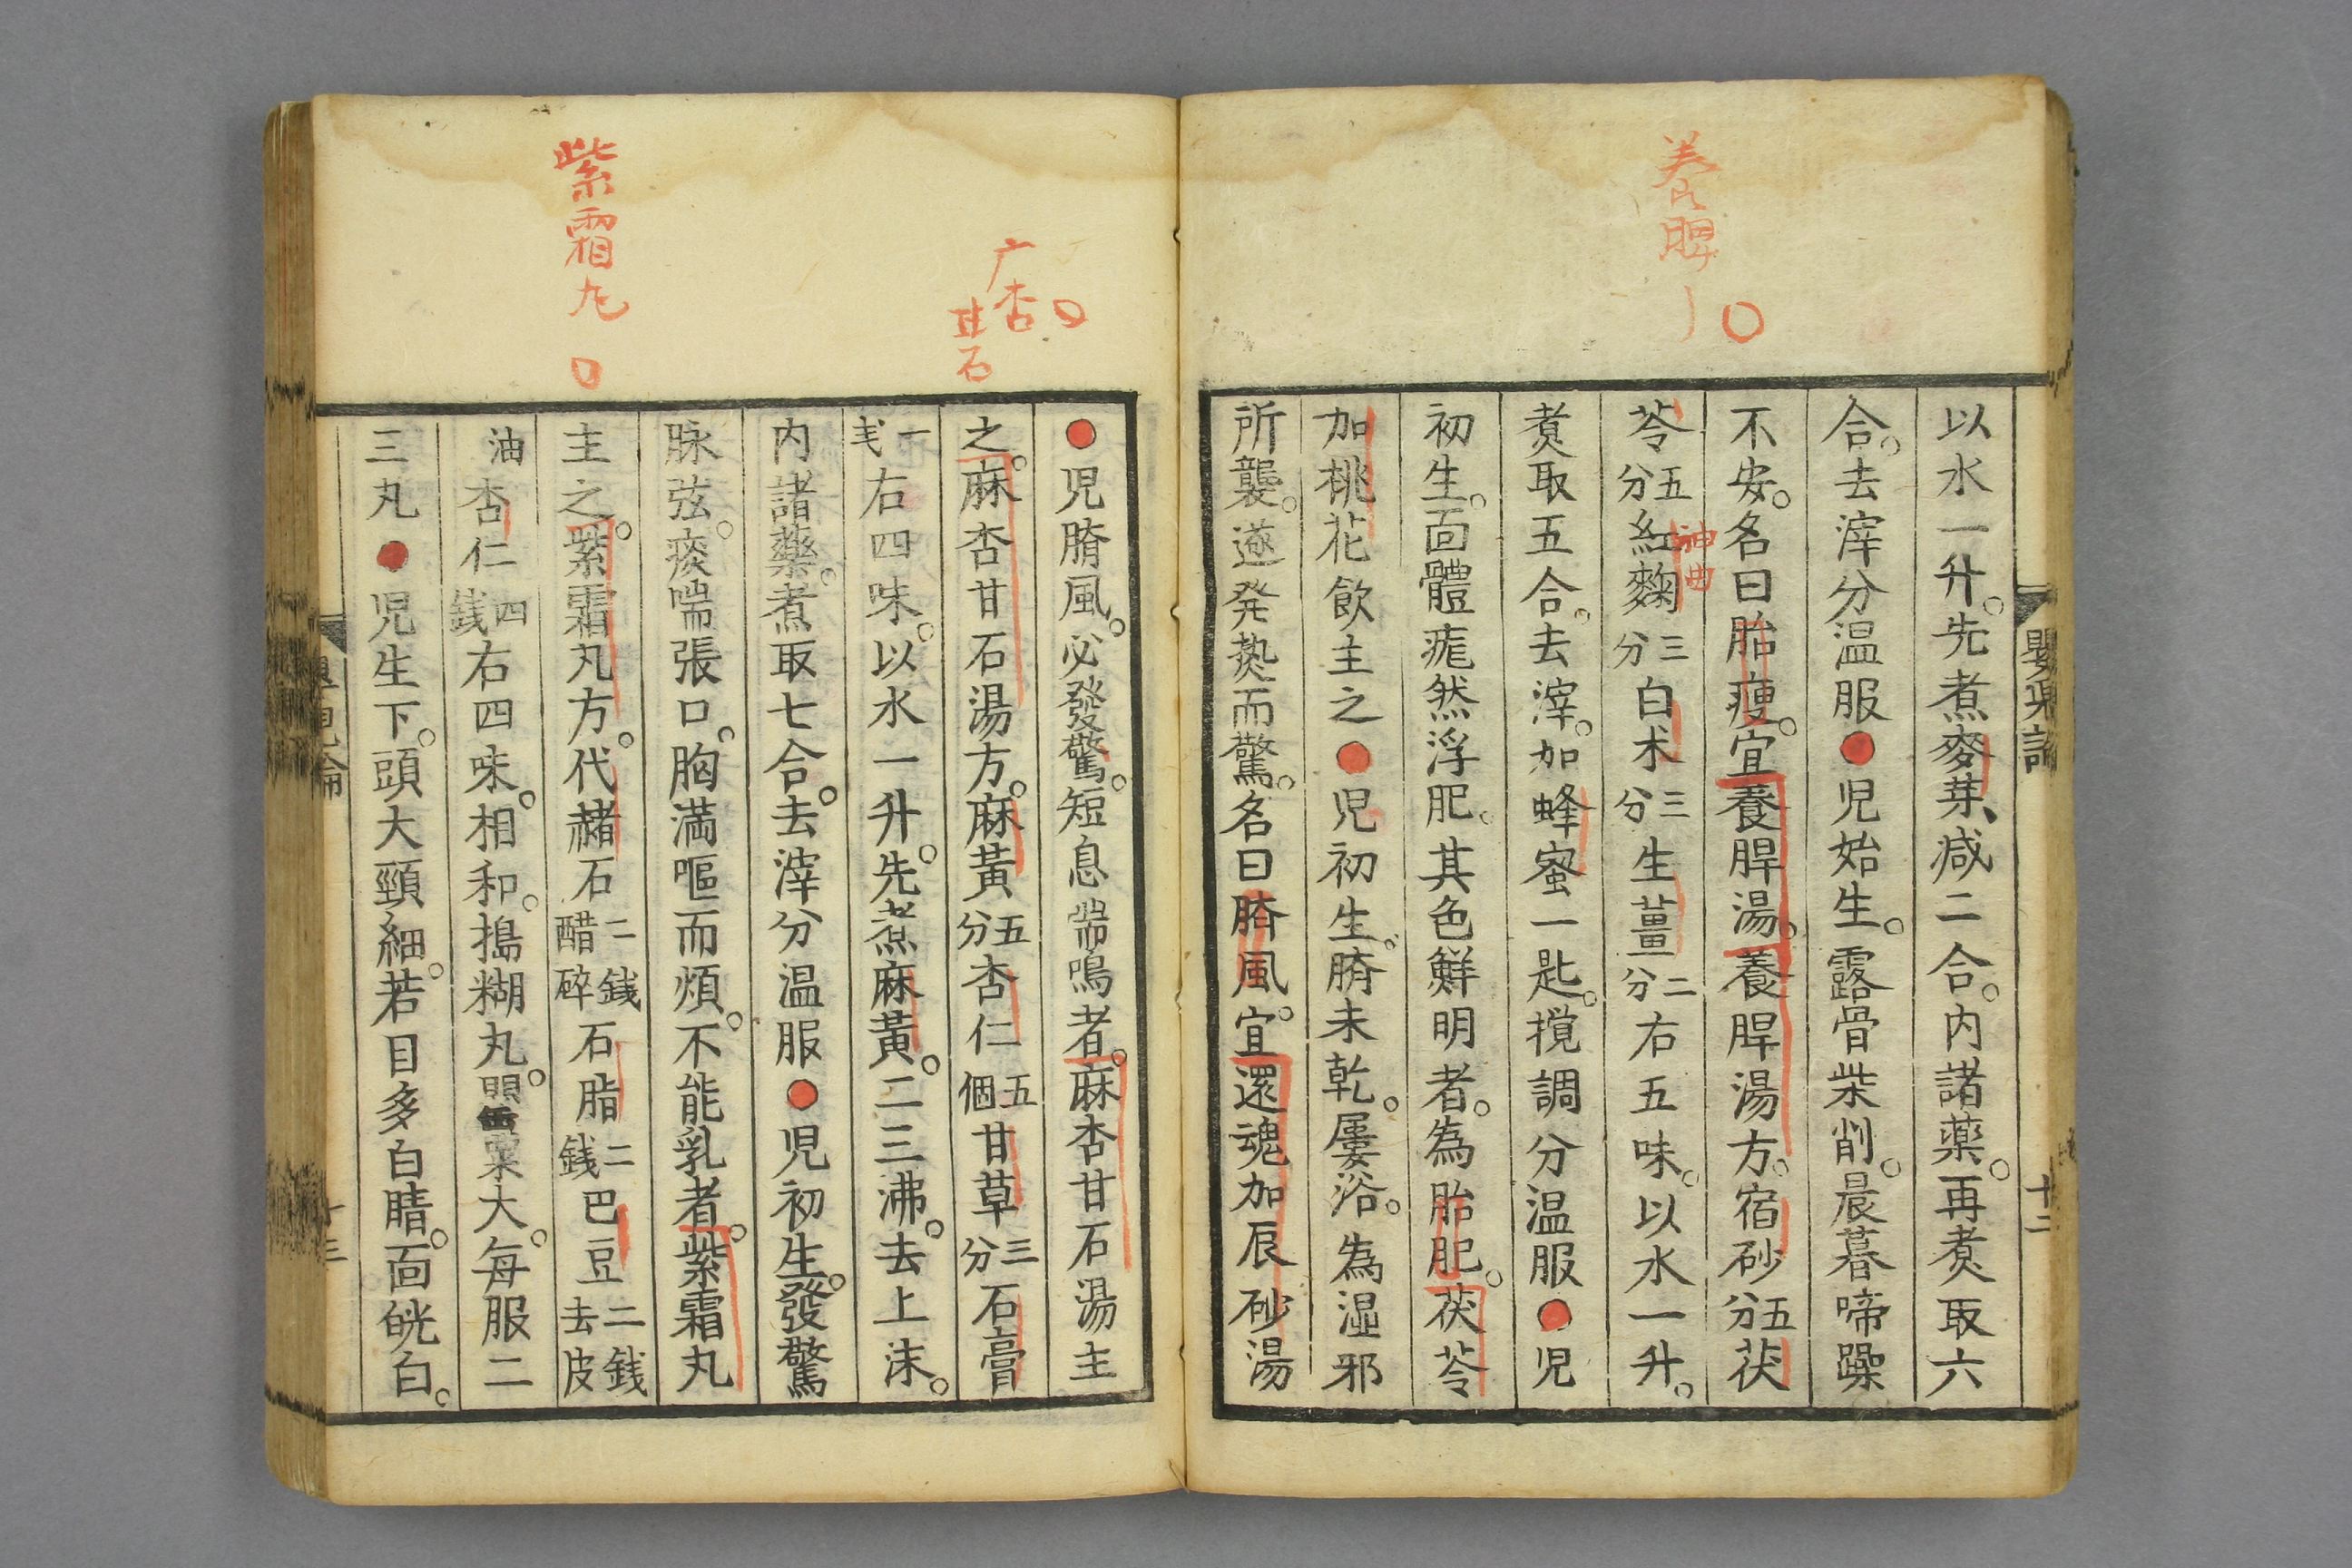 養脾
以水一升。先煮麥芽、减二合。内諸藥。再煑取六
合。去滓分温服●児始生。露骨柴削。晨暮啼躁
不安。名曰胎瘦。宜養脾湯。養脾湯方。宿砂五分茯
苓五分紅麴三分白术三分生薑二分右五味。以水一升。
神曲
煑取五合。去滓。加蜂蜜一匙。攪調分温服●児
初生。面體疤然浮肥。其色鮮明者。為胎肥。茯苓
加桃花飲主之●児初生。臍未乾。屢浴。為湿邪
所襲。遂発𤍠而驚。名曰臍風。宜還魂加辰砂湯
广杏
甘石
●児臍風。必發驚。短息喘鳴者。麻杏甘石湯主
之。麻杏甘石湯方。麻黃五分杏仁五個甘草三分石膏
一戔右四味。以水一升。先煮麻黃。二三沸。去上沫。
内諸藥。煮取七合。去滓分温服●児初生。發驚
脉弦。痰喘張口。胸満嘔而煩。不能乳者。紫霜丸
紫霜丸
主之。紫霜丸方。代赭石二錢醋碎石脂二錢巴豆二錢去皮
油杏仁四錢右四味。相和。搗糊丸。罌粟大。每服二
三丸●児生下。頭大頸細。若目多白睛。面皝白。